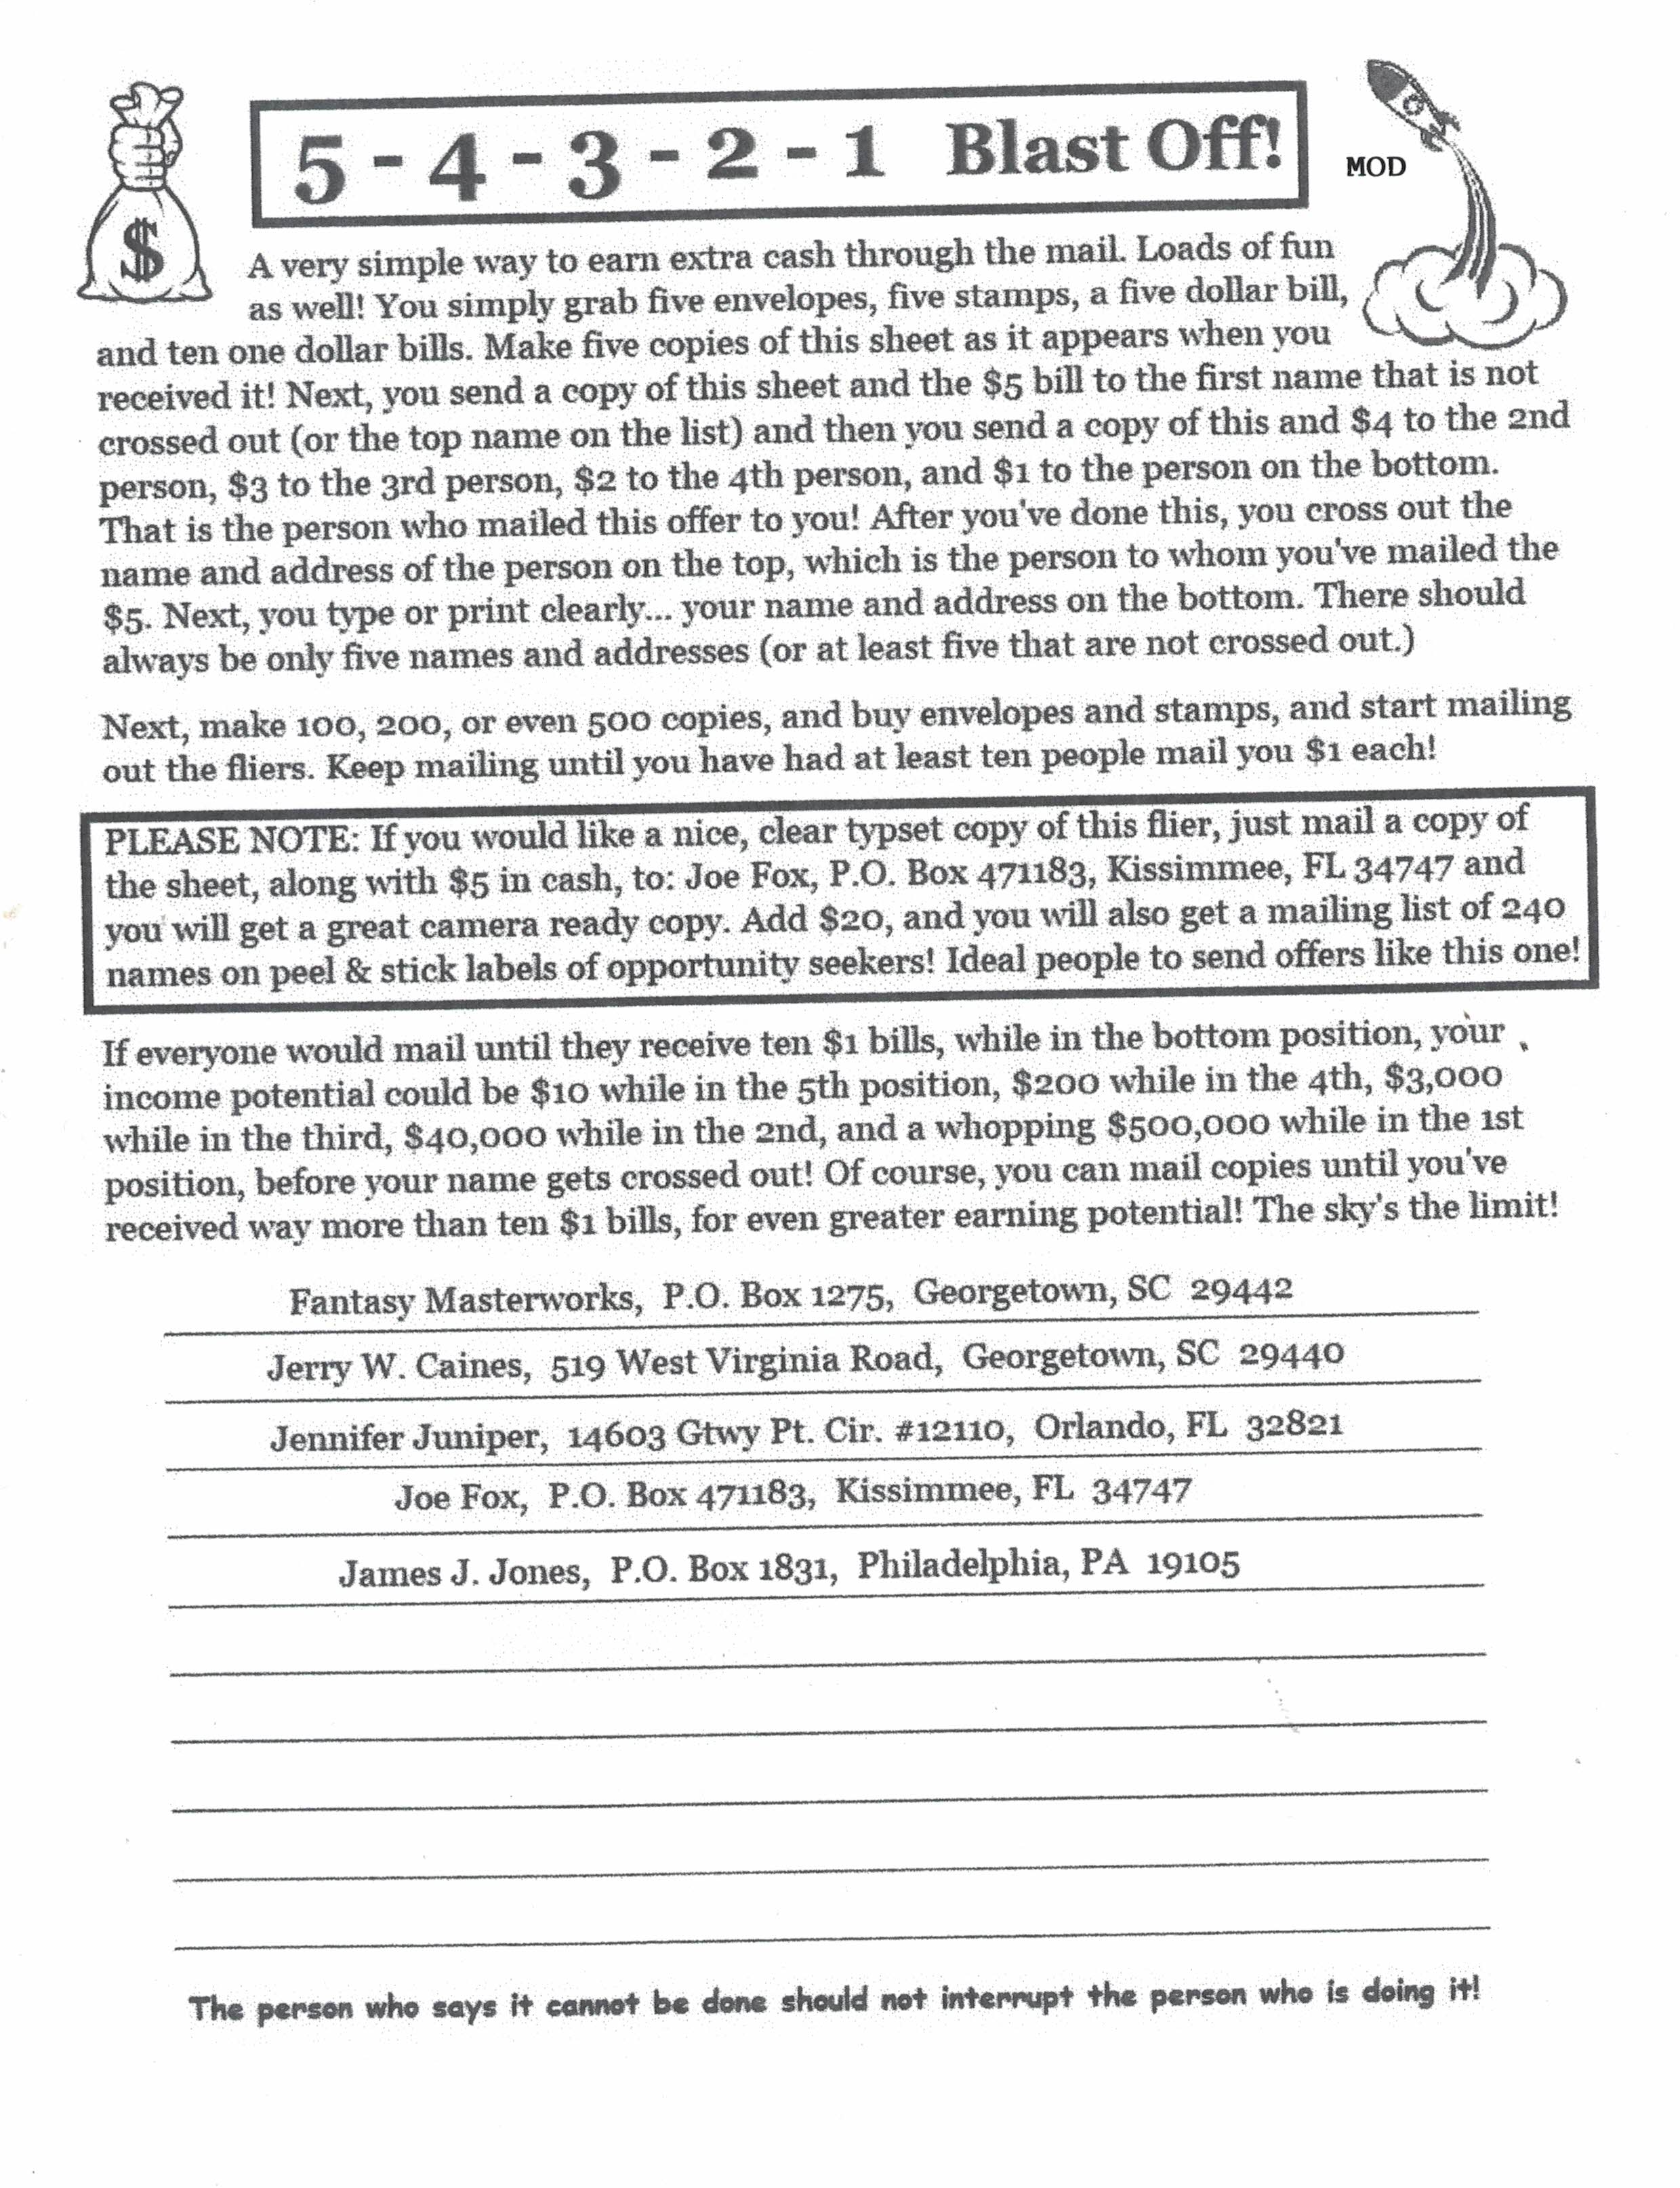 5 - 4 - 3 - 2 - 1 Blast Off!
MOD
$
A very simple way to earn extra cash through the mail. Loads of fun
as well! You simply grab five envelopes, five stamps, a five dollar bill,
and ten one dollar bills. Make five copies of this sheet as it appears when you
received it! Next, you send a copy of this sheet and the $5 bill to the first name that is not
crossed out (or the top name on the list) and then you send a copy of this and $4 to the 2nd
person, $3 to the 3rd person, $2 to the 4th person, and $1 to the person on the bottom.
That is the person who mailed this offer to you! After you've done this, you cross out the
name and address of the person on the top, which is the person to whom you've mailed the
$5. Next, you type or print clearly... your name and address on the bottom. There should
always be only five names and addresses (or at least five that are not crossed out.)
Next, make 100, 200, or even 500 copies, and buy envelopes and stamps, and start mailing
out the fliers. Keep mailing until you have had at least ten people mail you $1 each!
PLEASE NOTE: If you would like a nice, clear typset copy of this flier, just mail a copy of
the sheet, along with $5 in cash, to: Joe Fox, P.O. Box 471183, Kissimmee, FL 34747 and
you will get a great camera ready copy. Add $20, and you will also get a mailing list of 240
names on peel & stick labels of opportunity seekers! Ideal people to send offers like this one!
If everyone would mail until they receive ten $1 bills, while in the bottom position, your
income potential could be $10 while in the 5th position, $200 while in the 4th, $3,000
while in the third, $40,000 while in the 2nd, and a whopping $500,000 while in the 1st
position, before your name gets crossed out! Of course, you can mail copies until you've
received way more than ten $1 bills, for even greater earning potential! The sky's the limit!
Fantasy Masterworks, P.O. Box 1275, Georgetown, SC 29442
Jerry W. Caines, 519 West Virginia Road, Georgetown, SC 29440
Jennifer Juniper, 14603 Gtwy Pt. Cir. #12110, Orlando, FL 32821
Joe Fox, P.O. Box 471183, Kissimmee, FL 34747
James J. Jones, P.O. Box 1831, Philadelphia, PA 19105
The person who says it cannot be done should not interrupt the person who is doing it!